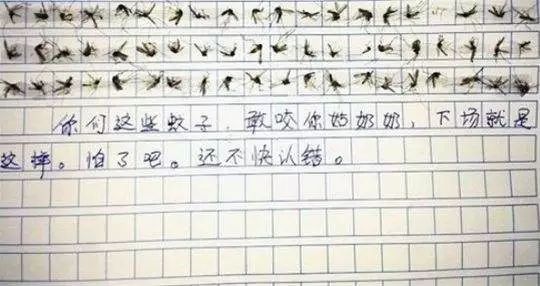 你们这些蚊子，敢咬你姑奶奶，下场就是
这样。怕了吧。还不快认错。